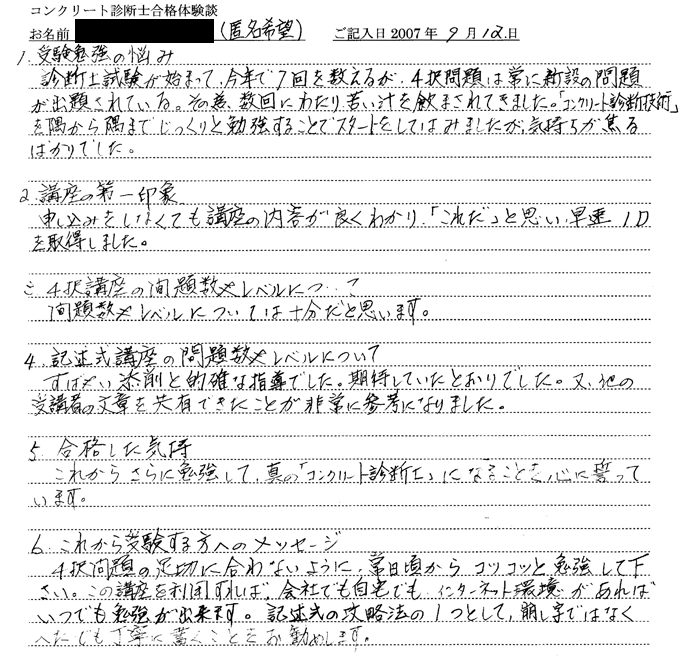 コンクリート診断士合格体験談
お名前 (匿名希望) ご記入日 2007 年 9 月 12 日
1. 受験勉強の悩み
診断士試験が始まって、今年で7回を数えるが、4択問題は常に新設の問題
が出題されている。その為、数回にわたり苦い汁を飲まされてきました。「コンクリート診断技術」
を隅から隅までじっくりと勉強することでスタートをしてはみましたが、気持ちが焦る
ばかりでした。
2 講座の第一印象
申し込みをしなくても講座の内容が良くわかり、「これだ」と思い、早速 ID
を取得しました。
3 4択講座の問題数やレベルについて
問題数やレベルについては十分だと思います。
4. 記述式講座の問題数やレベルについて
すばやい添削と的確な指導でした。期待していたとおりでした。又、他の
受講者の文章を共有できたことが非常に参考になりました。
5. 合格した気持
これからさらに勉強して、真の「コンクリート診断士」になることを、心に誓って
います。
6. これから受験する方へのメッセージ
4択問題の足切に合わないように、常日頃からコツコツと勉強して下
さい。この講座を利用すれば、会社でも自宅でも、インターネット環境があれば
いつでも勉強が出来ます。記述式の攻略法の1つとして、崩し字ではなく
へたでも丁寧に書くことをお勧めします。